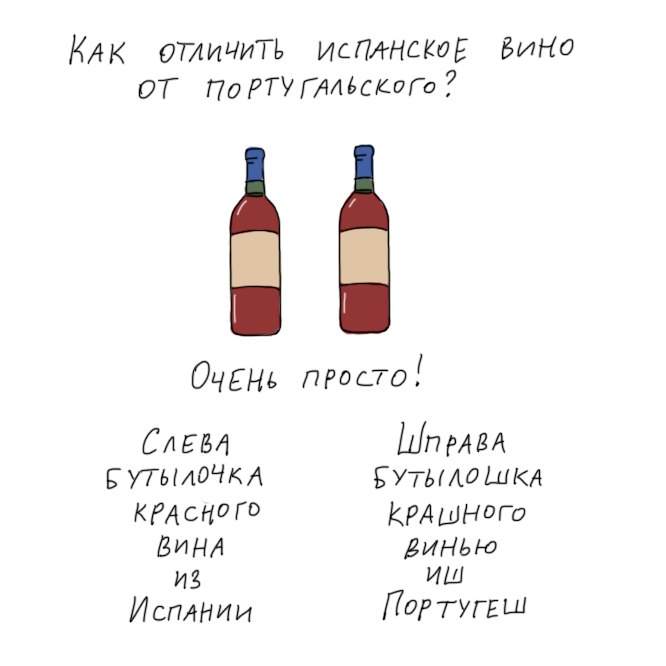 Как отличить испанское вино
от португальского?
Очень просто!
Слева
бутылочка
красного
вина
из
Испании
Шправа
бутылошка
крашного
винью
иш
Португеш